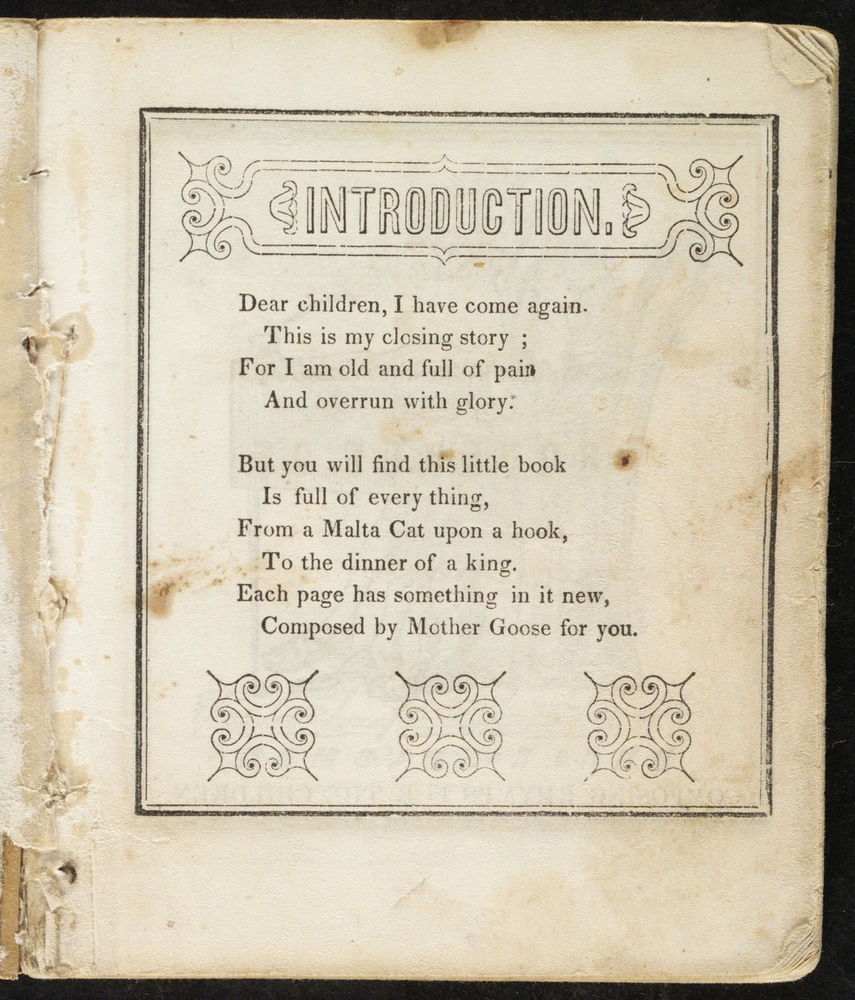 INTRODUCTION.
Dear children, I have come again.
This is my closing story ;
For I am old and full of pain
And overrun with glory.
But you will find this little book
Is full of every thing,
From a Malta Cat upon a hook,
To the dinner of a king.
Each page has something in it new,
Composed by Mother Goose for you.